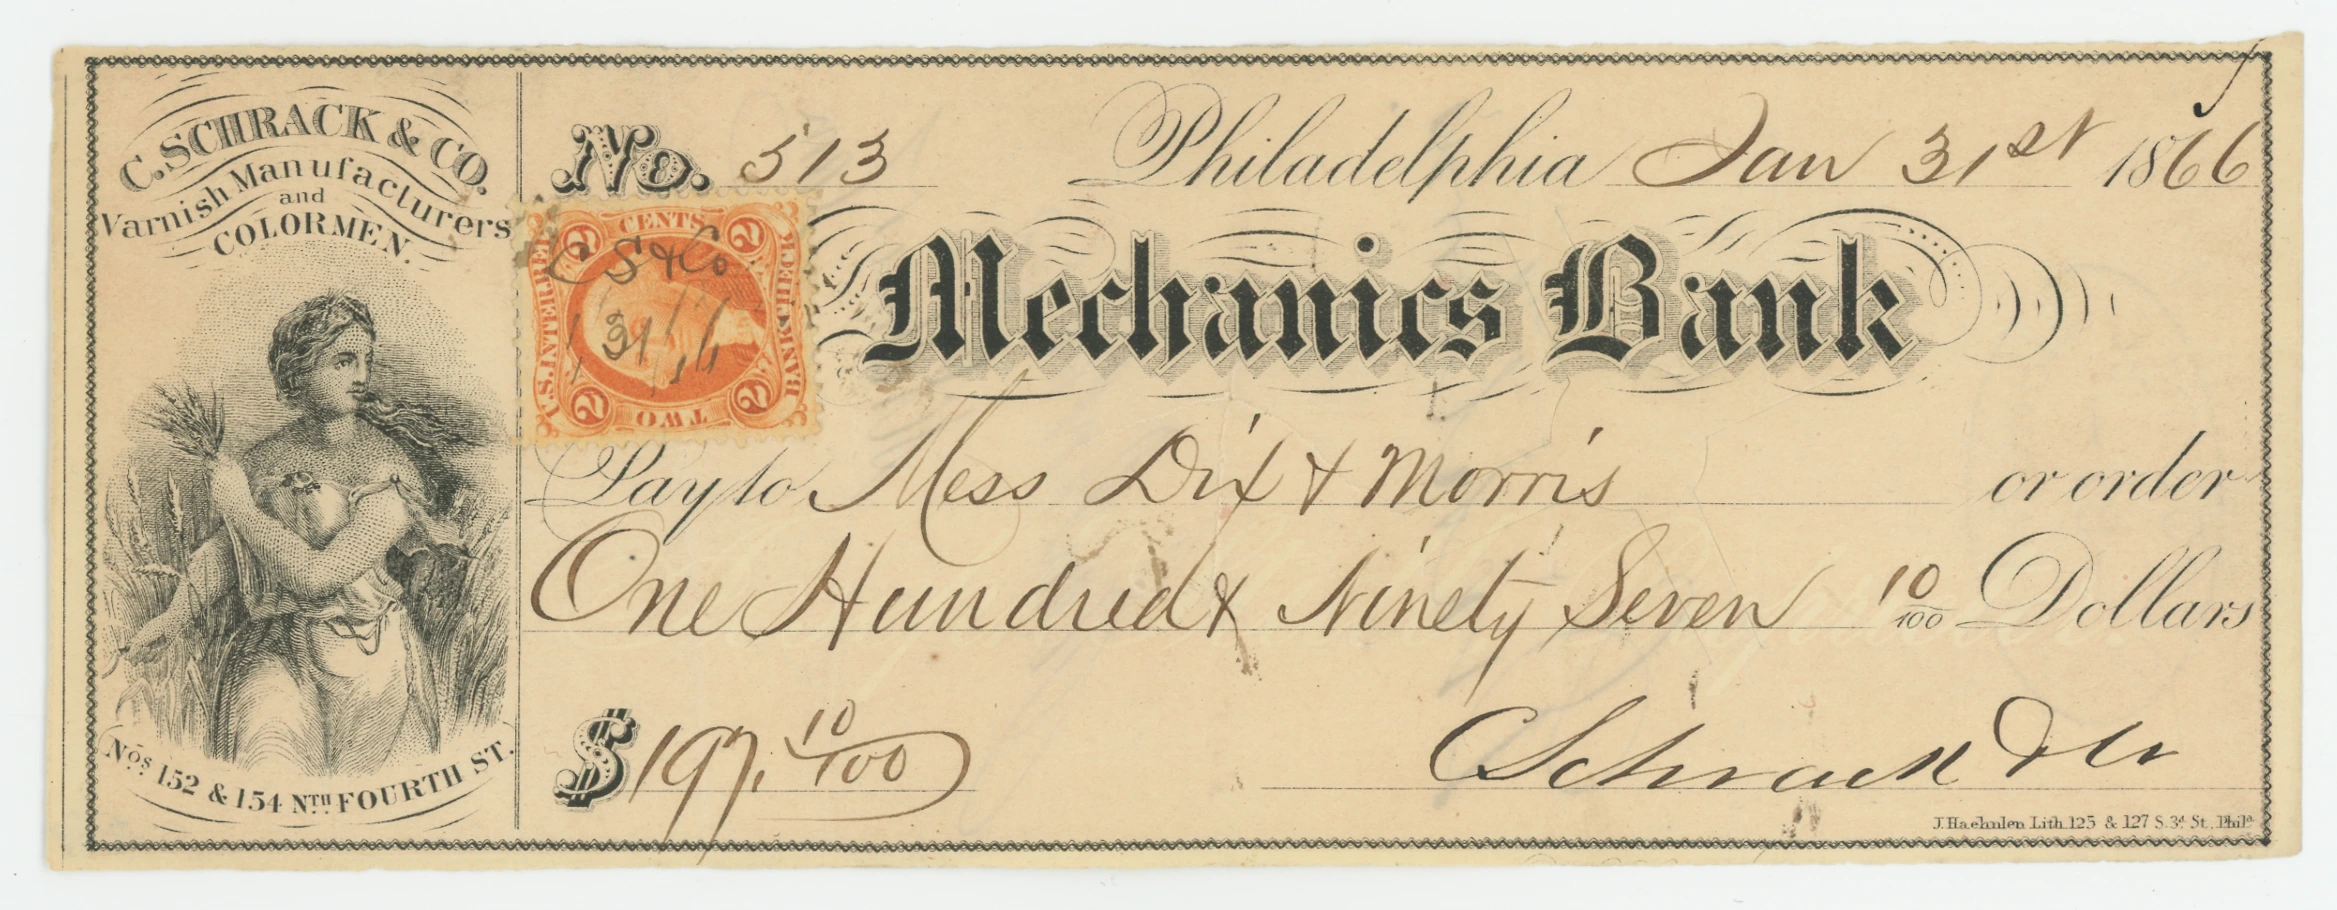 C. SCHRACK & CO.
Varnish Manufacturers
and
COLORMEN.
Nos. 152 & 154 NTH. FOURTH ST.
No. 513
Philadelphia Jan 31st 1866
U.S. INTER. REV.
2 CENTS 2
BANK CHECK
2 TWO 2
C S & Co
1 31 66
Mechanics Bank
Pay to Mess Dix & Morris or order
One Hundred & Ninety Seven 10/100 Dollars
$197. 10/100
C Schrack & Co
J. Haehnlen Lith. 125 & 127 S. 3d. St. Phila.